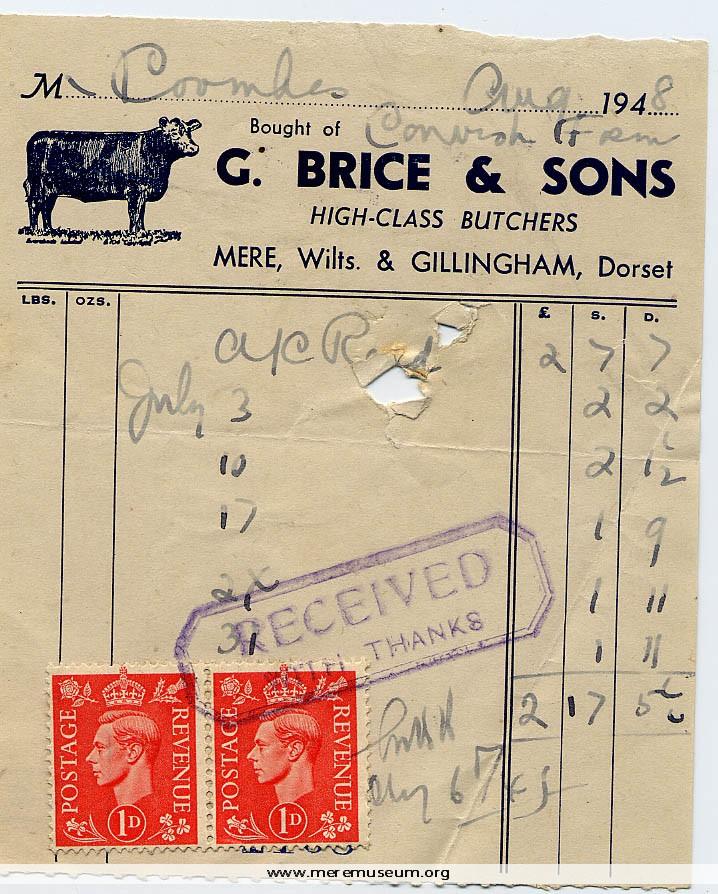 M Coombes Aug 1948
Bought of Cornish Farm
G. BRICE & SONS
HIGH-CLASS BUTCHERS
MERE, Wilts. & GILLINGHAM, Dorset
LBS. OZS. £ S. D.
A/C 2 7 7
July 3 2 2
10 2 1½
17 1 9
24 1 11
31 1 11
RECEIVED
WITH THANKS
2 17 5½
POSTAGE REVENUE 1D
POSTAGE REVENUE 1D
www.meremuseum.org